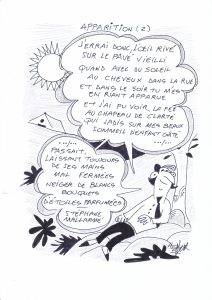 APPARITION (2)
J'ERRAI DONC, L'OEIL RIVÉ
SUR LE PAVÉ VIEILLI
QUAND AVEC DU SOLEIL
AU CHEVEUX DANS LA RUE
ET DANS LE SOIR TU M'ES
EN RIANT APPARUE
ET J'AI PU VOIR LA FÉE
AU CHAPEAU DE CLARTÉ
QUI JADIS SUR MES BEAUX
SOMMEIL D'ENFANT GÂTÉ
.../...
.../...
PASSAIT,
LAISSANT TOUJOURS
DE SES MAINS
MAL FERMÉES
NEIGER DE BLANCS
BOUQUETS
D'ÉTOILES PARFUMÉES
STÉPHANE
MALLARMÉ